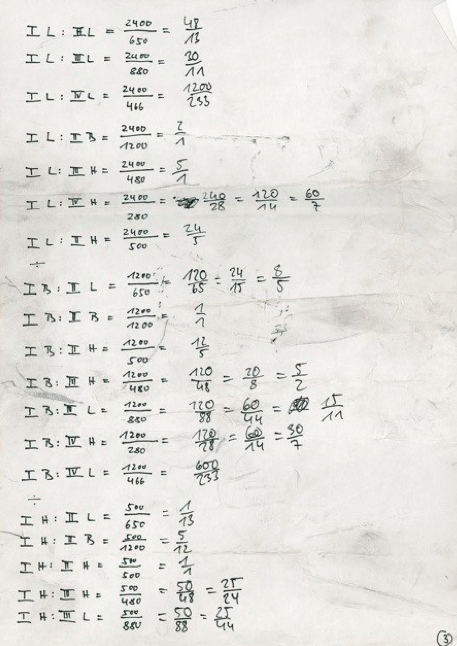 I L : II L = 2400/650 = 48/13
I L : III L = 2400/880 = 30/11
I L : IV L = 2400/466 = 1200/233
I L : II B = 2400/1200 = 2/1
I L : III H = 2400/480 = 5/1
I L : IV H = 2400/280 = 240/28 = 120/14 = 60/7
I L : II H = 2400/500 = 24/5
÷
I B : II L = 1200/650 = 120/65 = 24/15 = 8/5
I B : II B = 1200/1200 = 1/1
I B : II H = 1200/500 = 12/5
I B : III H = 1200/480 = 120/48 = 20/8 = 5/2
I B : III L = 1200/880 = 120/88 = 60/44 = 15/11
I B : IV H = 1200/280 = 120/28 = 60/14 = 30/7
I B : IV L = 1200/466 = 600/233
÷
I H : II L = 500/650 = 1/13
I H : II B = 500/1200 = 5/12
I H : II H = 500/500 = 1/1
I H : III H = 500/480 = 50/48 = 25/24
I H : III L = 500/880 = 50/88 = 25/44
3